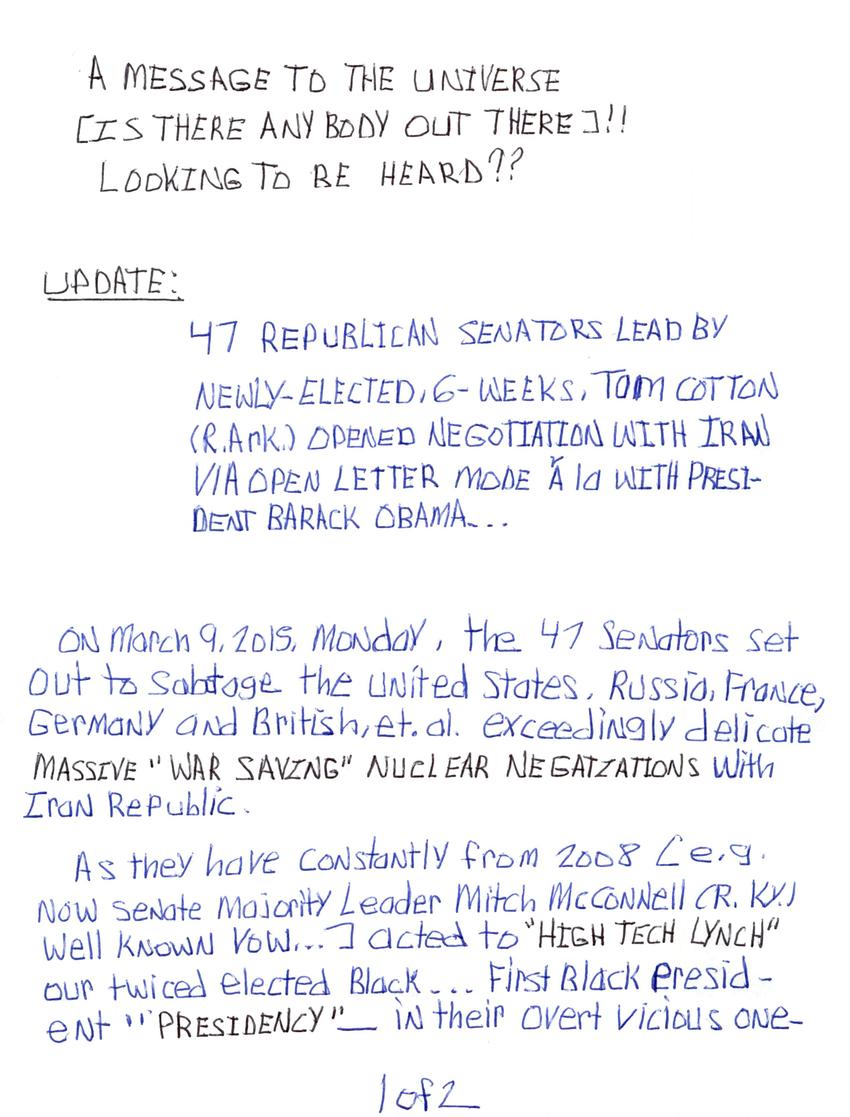 A MESSAGE TO THE UNIVERSE
[IS THERE ANY BODY OUT THERE]!!
LOOKING TO BE HEARD??
UPDATE:
47 REPUBLICAN SENATORS LEAD BY
NEWLY-ELECTED, 6-WEEKS, TOM COTTON
(R.ArK.) OPENED NEGOTIATION WITH IRAN
VIA OPEN LETTER MODE Á la WITH PRESI-
DENT BARACK OBAMA...
ON March 9, 2015, Monday, the 47 Senators set
out to Sabtoge the United States, Russia, France,
Germany and British, et. al. exceedingly delicate
MASSIVE "WAR SAVING" NUCLEAR NEGATIATIONS with
Iran Republic.
As they have constantly from 2008 [e.g.
Now Senate Majority Leader Mitch McConnell (R. KY.)
well known vow...] acted to "HIGH TECH LYNCH"
our twiced elected Black... First Black Presid-
ent "PRESIDENCY"— in their overt vicious one-
1 of 2